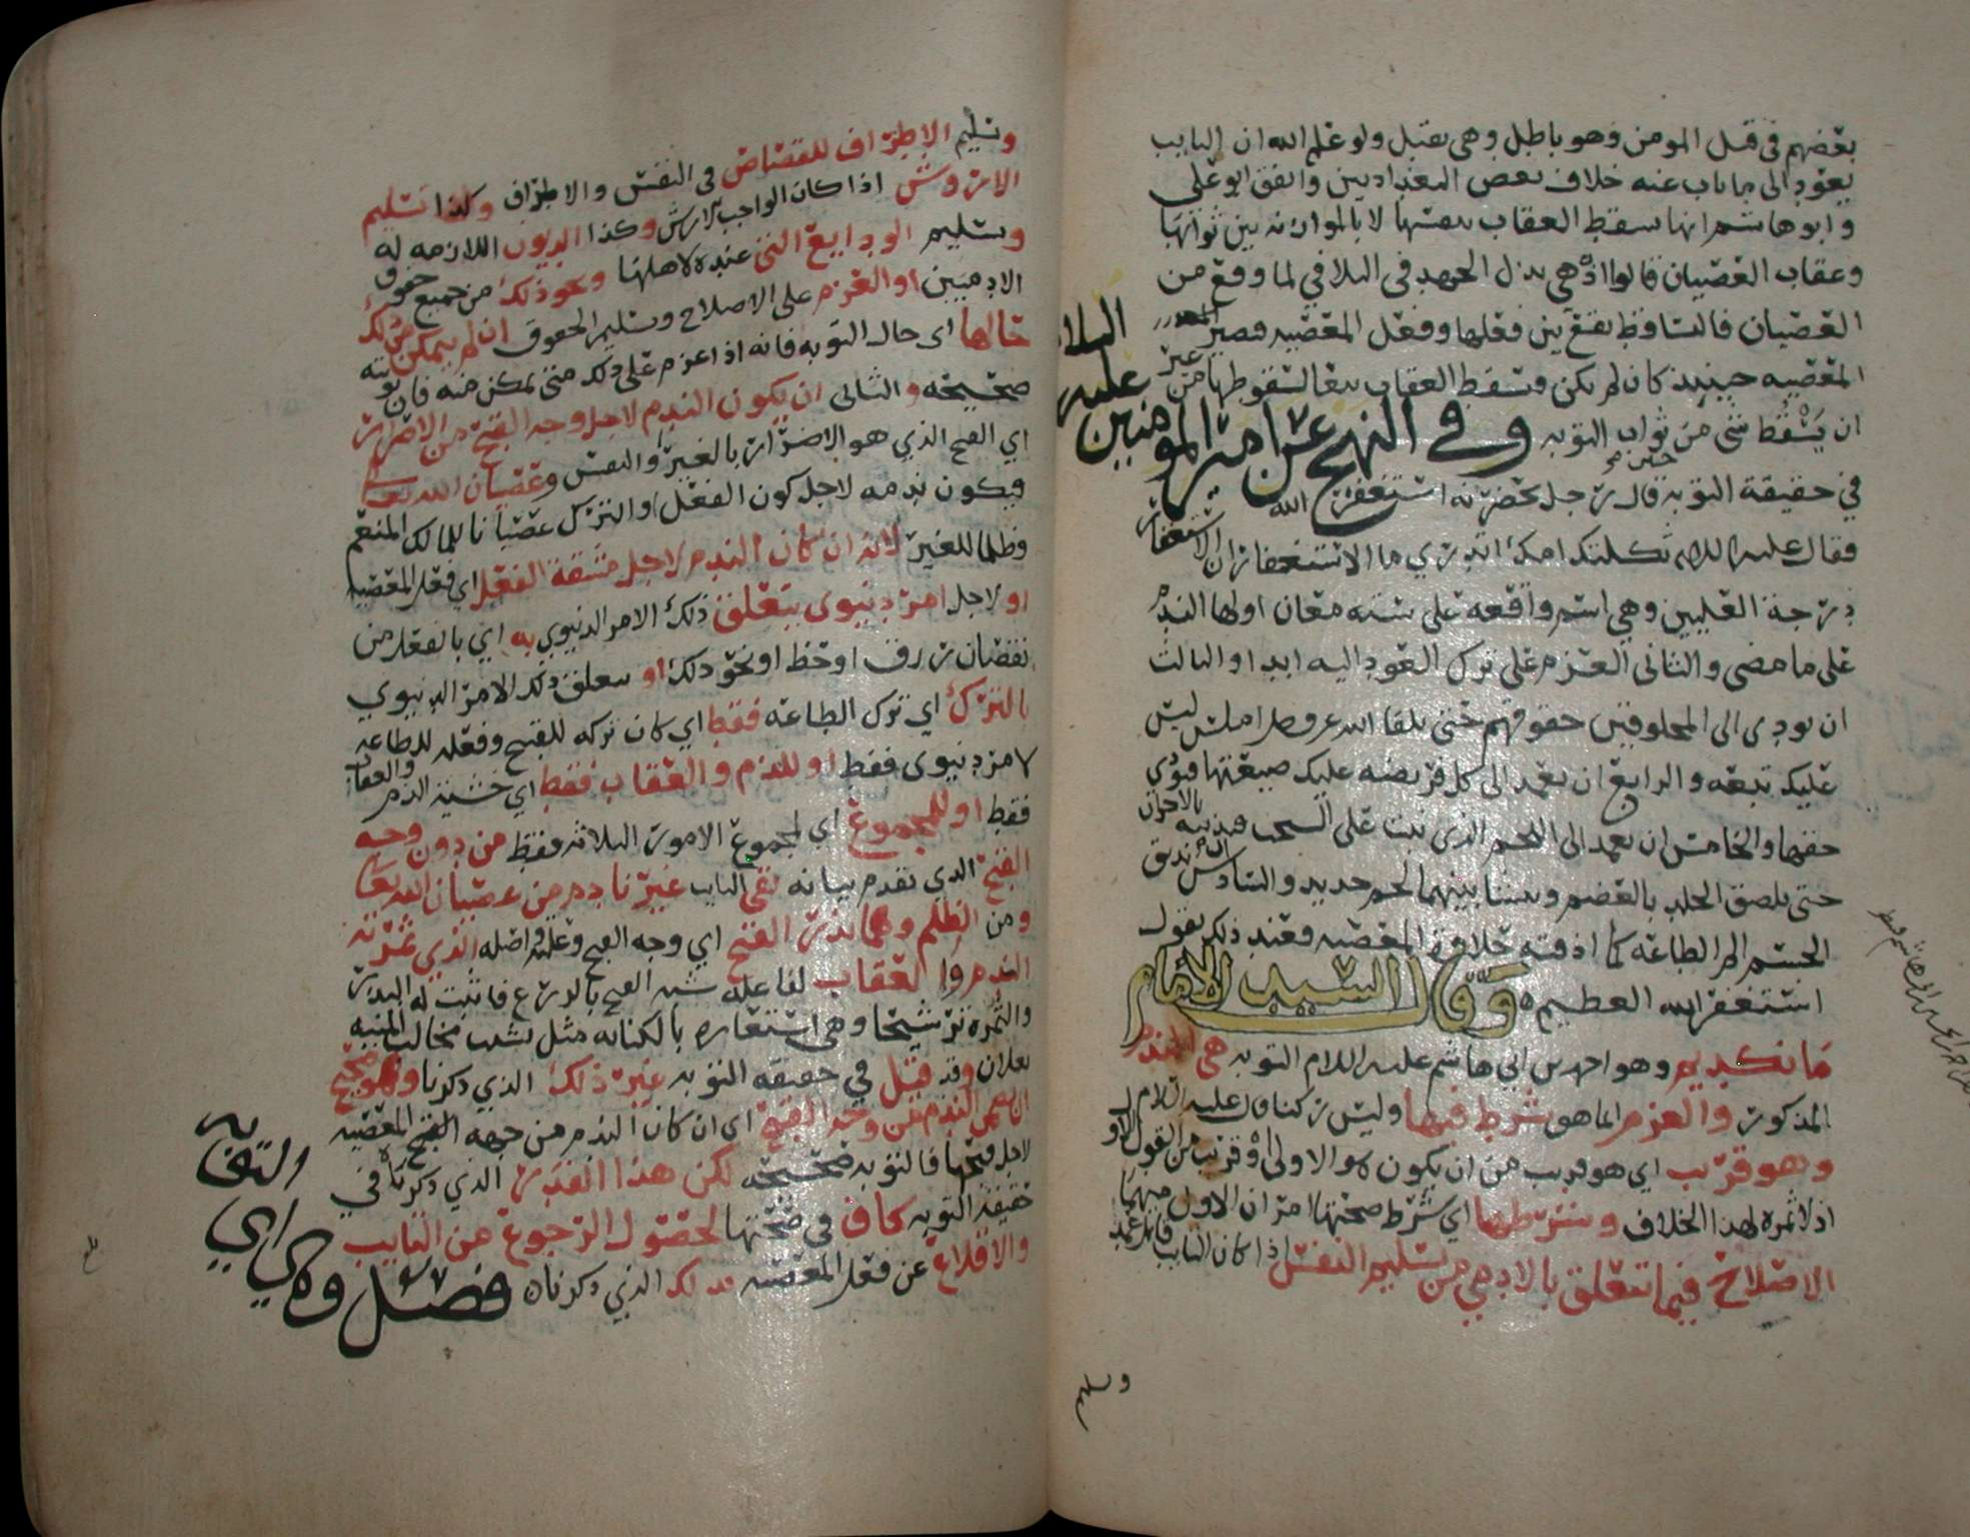 بعضهم في قتل المومن وهو باطل وهي تقبل ولو علم الله ان التايب
يعود الى ما تاب عنه خلاف بعض البغداديين واتفق ابو علي
وابو هاشم انها تسقط العقاب بنفسها لا بالموازنه بين ثوابها
وعقاب العصيان قالوا اذ هي بذل الجهد في التلافي لما وقع من
العصيان فالتساقط يقع بين فعلها وفعل المعصيه فتصير
المعصيه حينيذ كان لم تكن وسقط العقاب تبعا لسقوطها من غير
ان يسقط شي من ثواب التوبه وفي النهج عن امير المومنين عليه السلام
في حقيقة التوبه قال رجل بحضرته استغفر الله
فقال عليه السلام ثكلتك امك اتدري ما الاستغفار ان الاستغفار
درجة العليين وهي اسم واقعه على سته معان اولها الندم
على ما مضى والثاني العزم على ترك العود اليه ابدا والثالث
ان تودي الى المخلوقين حقوقهم حتى تلقا الله عز وجل املس ليس
عليك تبعه والرابع ان تعمد الى كل فريضه عليك ضيعتها فتؤدي
حقها والخامس ان تعمد الى اللحم الذي نبت على السحت فتذيبه بالاحزان
حتى يلصق الجلد بالعضم وينشا بينهما لحم جديد والسادس ان تذيق
الجسم الم الطاعه كما اذقته حلاوة المعصيه فعند ذلك تقول
استغفر الله العظيم وقال السيد الامام
مانكديم وهو احمد بن ابي هاشم عليه السلام التوبه هي الندم
المذكور والعزم انما هو شرط فيها وليس ركنا قال عليه السلام
وهو قريب اي هو قريب من ان يكون هو الاولى او قريب من القول الاول
اذ لا ثمره لهذا الخلاف وشرطها اي شرط صحتها امران الاول منهما
الاصلاح فيما تتعلق بالادمي من تسليم النفس اذا كان التايب قاتل عمد
وسليم
وتسليم الاطراف للقصاص في النفس والاطراف وكذا تسليم
الاروش اذا كان الواجب الارش وكذا الديون اللازمه له
وتسليم الودايع التي عنده لاهلها ونحو ذلك من جميع حقوق
الادميين او العزم على الاصلاح وتسليم الحقوق ان لم يتمكن من ذلك
حالها اي حال التوبه فانه اذا عزم على ذلك متى تمكن منه فان توبته
صحيحه والثاني ان يكون الندم لاجل وجه القبح من الاضرار
اي القبح الذي هو الاضرار بالغير او النفس وعصيان الله تعالى
فيكون ندمه لاجل كون الفعل او الترك عصيانا للمالك المنعم
وظلما للغير لانه ان كان الندم لاجل مشقة الفعل اي فعل المعصيه
او لاجل امر دنيوي يتعلق ذلك الامر الدنيوي به اي بالفعل من
نقصان رزق او حظ او نحو ذلك او يتعلق ذلك الامر الدنيوي
بالترك اي ترك الطاعه فقط اي كان تركه للقبح وفعله للطاعه
لامر دنيوي فقط او للذم والعقاب فقط اي خشية الذم والعقاب
فقط او للمجموع اي لمجموع الامور الثلاثه فقط من دون وجه
القبح الذي تقدم بيانه بقي التايب غير نادم من عصيان الله تعالى
ومن الظلم وهما بذر القبح اي وجه القبح وعلته واصله الذي ثمرته
الذم والعقاب لفاعله شبه القبح بالزرع فاثبت له البذر
والثمره ترشيحا وهي استعاره بالكنايه مثل نشب مخالب المنيه
بفلان وقد قيل في حقيقه التوبه غير ذلك الذي ذكرنا وهو صحيح
ان سمي الندم من وجه القبح اي ان كان الندم من جهه القبح المعصيه
لاجل قبحها فالتوبه صحيحه لكن هذا القدر الذي ذكرناه في
حقيقة التوبه كاف في صحتها لحصول الرجوع من التايب
والاقلاع عن فعل المعصيه بذلك الذي ذكرناه فصل وهي اي التوبه